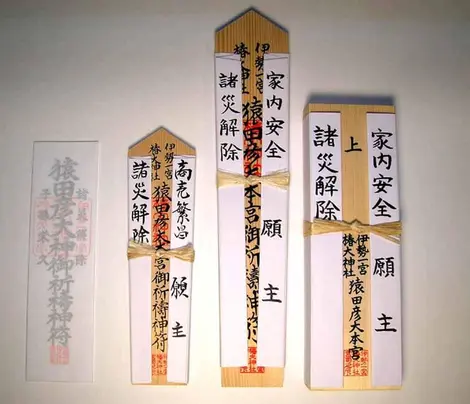 家内安全 願主
上
伊勢一宮
椿大神社
猿田彦大本宮
諸災解除
家内安全 願主
伊勢一宮
椿大神社
猿田彦大本宮御祈禱神符
諸災解除
商売繁昌 願主
伊勢一宮
椿大神社
猿田彦大本宮御祈禱神符
諸災解除
猿田彦大神御祈禱神符